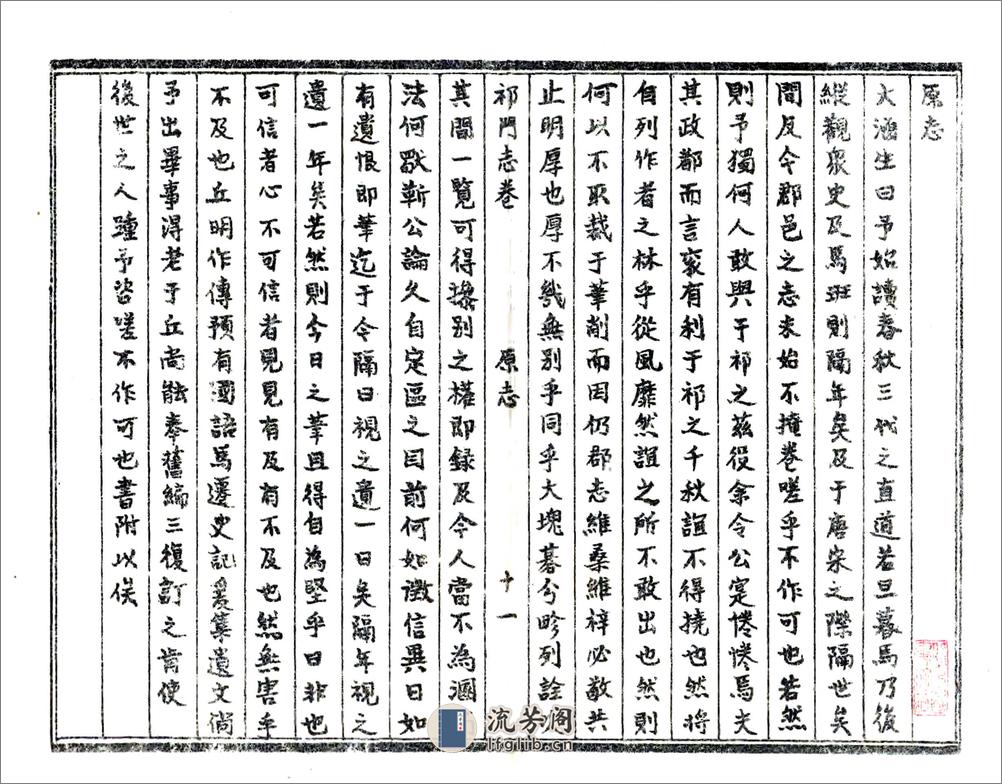 原志
大涵生曰予始讀春秋三代之直道若旦暮焉乃後
縱觀衆史及馬班則隔年矣及于唐宋之際隔世矣
間及今郡邑之志未始不掩卷嗟乎不作可也若然
則予獨何人敢與于祁之茲役余令公寔惓惓焉夫
其政鄰而言褎有利于祁之千秋誼不得撓也然將
自列作者之林乎從風靡然誼之所不敢出也然則
何以不取裁于筆削而因仍郡志維桑維梓必敬共
止明厚也厚不幾無別乎同乎大塊碁兮畛列詮
祁門志卷 原志 十一
其間一覽可得據別之權即錄及今人當不為溷
法何厭靳公論久自定區之目前何如徵信異日如
有遺恨即筆迄于今隔日視之遺一日矣隔年視之
遺一年矣若然則今日之筆且得自為堅乎曰非也
可信者心不可信者見見有及有不及也然無害乎
不及也丘明作傳預有國語馬遷史記爰集遺文倘
予出畢事得老于丘尚能奉舊編三復訂之肯使
後世之人踵予咨嗟不作可也書附以俟
流芳阁
lfglib.cn